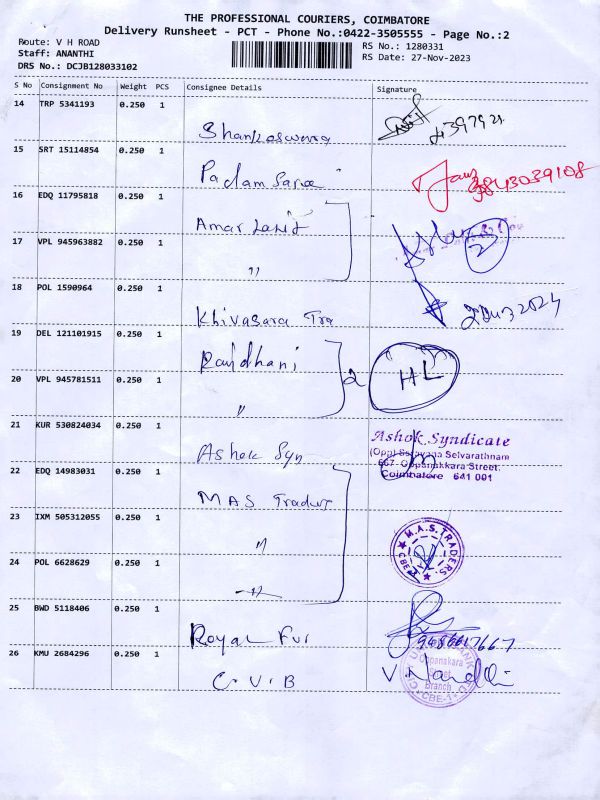 THE PROFESSIONAL COURIERS, COIMBATORE
Delivery Runsheet - PCT - Phone No.:0422-3505555 - Page No.:2
Route: V H ROAD
Staff: ANANTHI
DRS No.: DCJB128033102
RS No.: 1280331
RS Date: 27-Nov-2023
S No Consignment No Weight PCS Consignee Details Signature
14 TRP 5341193 0.250 1
15 SRT 15114854 0.250 1
Padam
9843039108
16 EDQ 11795818 0.250 1
Amar
2
17 VPL 945963882 0.250 1
"
18 POL 1590964 0.250 1
Khivasara Tra
19 DEL 121101915 0.250 1
Rajdhani
2
HL
20 VPL 945781511 0.250 1
"
21 KUR 530824034 0.250 1
Ashok Syn
Ashok Syndicate
(Opp) Saravana Selvarathnam
667- Oppanakkara Street.
Coimbatore 641 001
22 EDQ 14983031 0.250 1
MAS Traders
23 IXM 505312055 0.250 1
"
M.A.S. TRADERS
CBE
24 POL 6628629 0.250 1
"
25 BWD 5118406 0.250 1
Royal Fur
9486617667
26 KMU 2684296 0.250 1
C.V.B
V. Nandhi
Oppanakara
Street
Branch
CBE-1